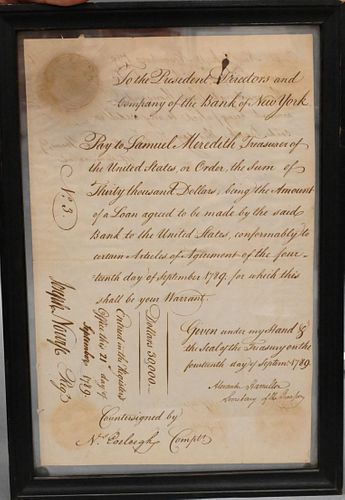 To the President Directors and
Company of the Bank of New York
Pay to Samuel Meredith Treasurer of
the United States, or Order, the Sum of
Thirty thousand Dollars; being the Amount
of a Loan agreed to be made by the said
Bank to the United States, conformably to
certain Articles of Agreement of the four-
teenth day of September 1789. for which this
shall be your Warrant.
Given under my Hand &
the Seal of the Treasury on the
fourteenth day of Septem. 1789.
Secretary of the Treasury
No. 3.
Dollars 30,000.
Entred in the Registers
Office this 21 day of
September 1789.
Joseph Nourse Regr.
Countersigned by
Compt.